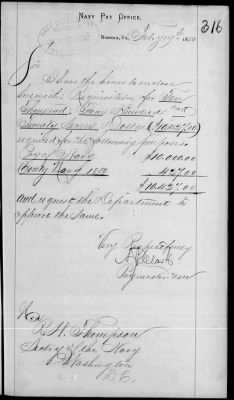 316
NAVY PAY OFFICE,
NORFOLK, VA. Feby 17th 1880
Sir
I have the honor to enclose
herewith Requisition for Ten
Thousand, Four Hundred and
Twenty Seven Dollars ($10427.00)
required for the following purposes
Pay of Navy $10.000.00
Contg Navy 1880 427.00
$10.427.00
and request the Department to
approve the same.
Very Respectfully
Clark
Paymaster USN
Hon
R. W. Thompson
Secty of the Navy
Washington
D.C.